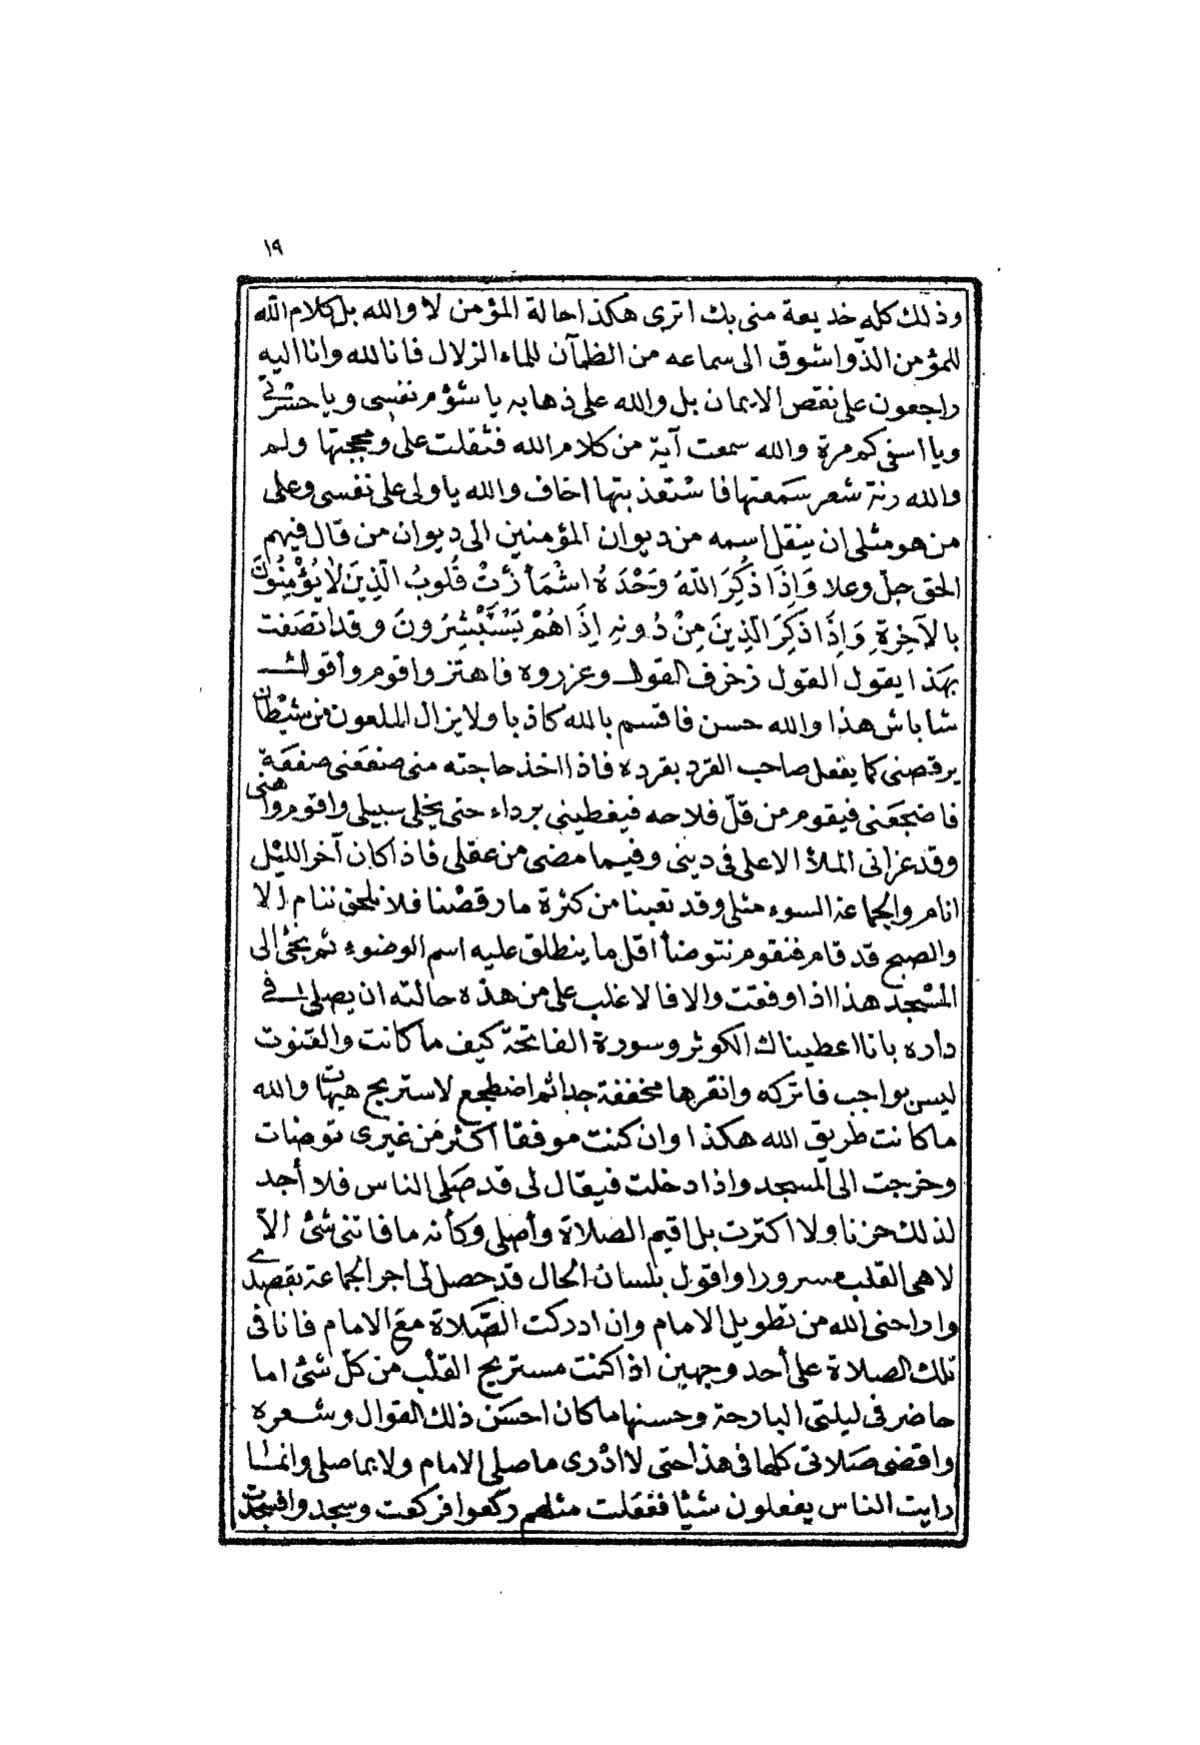 ١٩
وذلك كله خديعة منى بك اترى هكذا حالة المؤمن لا والله بل كلام الله
للمؤمن الذّ واشوق الى سماعه من الظمآن للماء الزلال فانا لله وانا اليه
راجعون على نقص الايمان بل والله على ذهابه يا شؤم نفسى ويا حسرتى
ويا اسفى كم مرة والله سمعت آية من كلام الله فثقلت على ومججتها ولم
والله رنة شعر سمعتها فاستعذبتها اخاف والله يا ولى على نفسى وعلى
من هو مثلى ان ينقل اسمه من ديوان المؤمنين الى ديوان من قال فيهم
الحق جلّ وعلا وَاِذَا ذُكِرَ اللّهُ وَحْدَهُ اشْمَأَزَّتْ قُلُوبُ الَّذِينَ لَا يُؤْمِنُونَ
بِالآخِرَةِ وَاِذَا ذُكِرَ الَّذِينَ مِنْ دُونِهِ إِذَا هُمْ يَسْتَبْشِرُونَ وقد اتصفت
بهذا يقول القول زخرف القول وعزروه فاهتز واقوم وأقول
شاباش هذا والله حسن فاقسم بالله كاذبا ولا يزال الملعون من شيطان
يرقصنى كما يفعل صاحب القرد بقرده فاذا اخذ حاجته منى صفعنى صفعة
فاضجعنى فيقوم من قلّ فلاحه فيغطينى برداء حتى يخلى سبيلى واقوم واهنى
وقد عزانى الملأ الاعلى فى دينى وفيما مضى من عقلى فاذا كان آخر الليل
انام والجماعة السوء مثلى وقد تعبنا من كثرة ما رقصنا فلا نلحق ننام الا
والصبح قد قام فنقوم نتوضأ اقل ما ينطلق عليه اسم الوضوء ثم نجئ الى
المسجد هذا اذا وفقت والا فالاغلب على من هذه حالته ان يصلى فى
داره بانا اعطيناك الكوثر وسورة الفاتحة كيف ما كانت والقنوت
ليس بواجب فاتركه وانقرها مخففة جدا ثم اضطجع لاستريح هيهات والله
ما كانت طريق الله هكذا وان كنت موفقا اكثر من غيرى توضات
وخرجت الى المسجد واذا دخلت فيقال لى قد صلى الناس فلا أجد
لذلك حزنا ولا اكترت بل اقيم الصلاة وأصلى وكأنه ما فاتنى شئ الّا
لاهى القلب مسرورا واقول بلسان الحال قد حصل لى اجر الجماعة بقصدى
واراحنى الله من تطويل الامام وان ادركت الصّلاة مع الامام فانا فى
تلك الصلاة على أحد وجهين اذا كنت مستريح القلب من كلّ شئ اما
حاضر فى ليلتى البارحة وحسنها ما كان احسن ذلك القوال وشعره
واقضى صلاتى كلها فى هذا حتى لا ادرى ما صلى الامام ولا بما صلى وانما
رايت الناس يفعلون شيئا ففعلت مثلهم ركعوا فركعت وسجدوا فسجدت